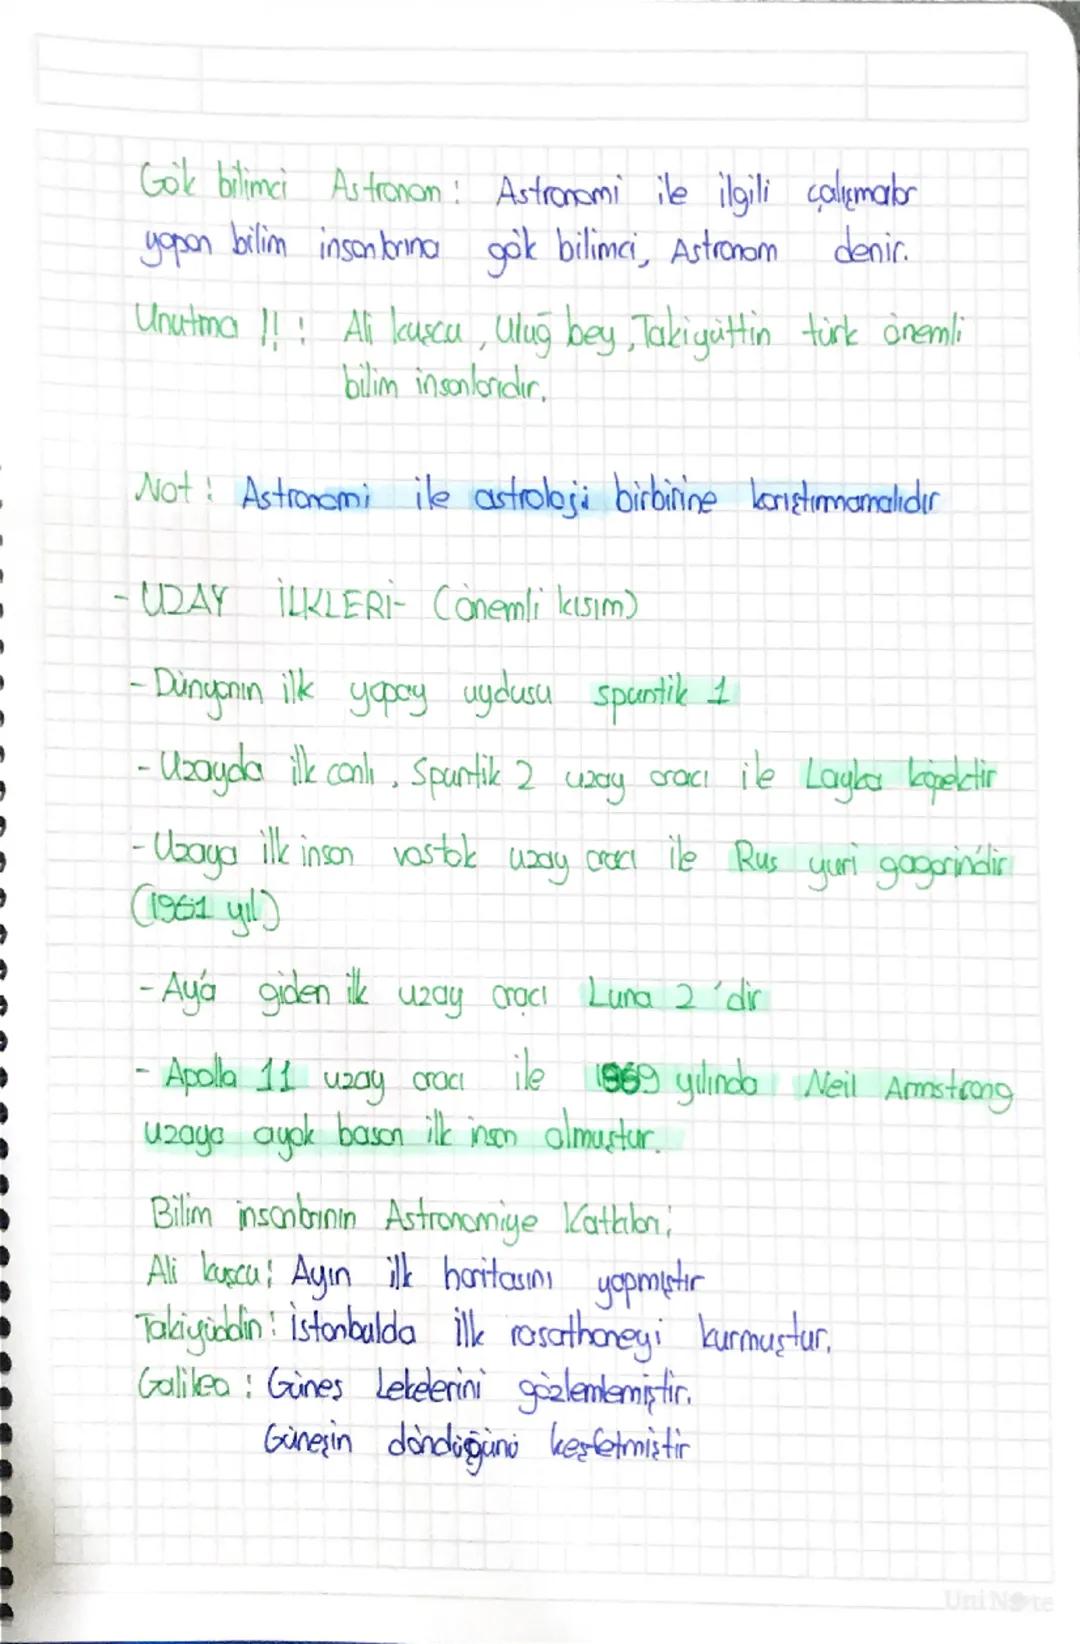 Gök bilimci Astronom : Astronomi ile ilgili çalışmalar
yapan bilim insanlarına gök bilimci, Astronom denir.
Unutma !! : Ali kuşcu, Uluğ bey, Takiyüttin türk önemli
bilim insanlarıdır.
Not : Astronomi ile astroloji birbirine karıştırmamalıdır
- UZAY İLKLERİ- (önemli kısım)
- Dünyanın ilk yapay uydusu spuntik 1
- Uzayda ilk canlı, Spuntik 2 uzay aracı ile Layka köpektir
- Uzaya ilk insan vostok uzay aracı ile Rus yuri gagarindir
(1961 yıl)
- Ay'a giden ilk uzay aracı Luna 2 'dir
- Apolla 11 uzay aracı ile 1969 yılında Neil Armstrong
uzaya ayak basan ilk insan olmuştur.
Bilim insanlarının Astronomiye Katkıları;
Ali kuşcu: Ayın ilk haritasını yapmıştır
Takiyüddin: İstanbulda ilk rasathaneyi kurmuştur.
Galileo : Güneş Lekelerini gözlemlemiştir.
Güneşin döndüğünü keşfetmiştir
UniNote